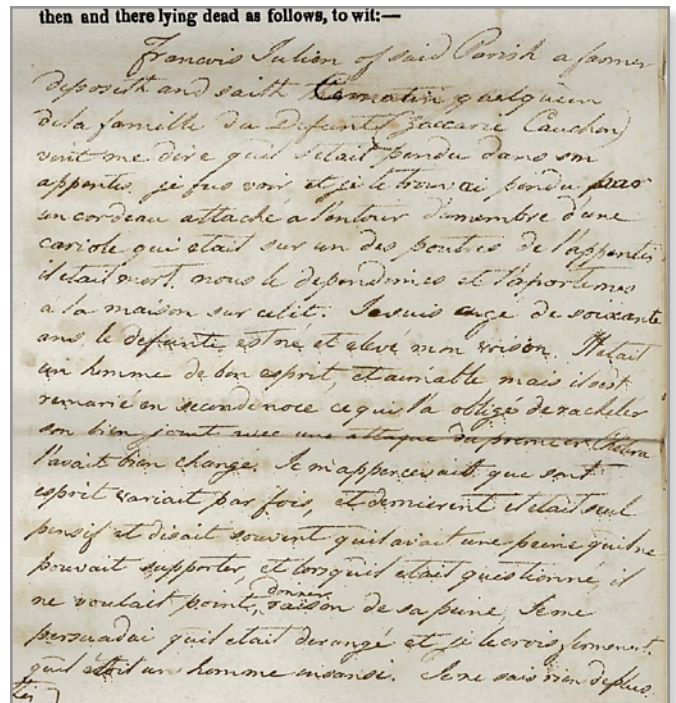 then and there lying dead as follows, to wit:—
Francois Julien of said Parish a farmer
deposeth and saith Cematin quelquien
dela famille du Defunt (Zaccarie Cauchon)
vint me dire quil s'etait pendu dans son
appentis, je fus voir, et je le trouvai pendu par
un cordeau attaché a l'entour d'umembre d'une
cariole qui etait sur un des poutres de l'appentis
il etait mort. nous le dependimes et l'aportames
a la maison sur celit. Je suis age de soixante
ans, le defunt est né et elevé mon voison. Il etait
un homme de bon esprit, et aimable mais il s'est
remarié en seconde noce ce qui l'a obligé de racheter
son bien joint avec une attaque du premier Choléra
l'avait bien changé. Je m'appercevait que sont
esprit variait par fois, et dernierent il etait seul
pensif et disait souvent quil avait une peine quil ne
pouvait supporter, et lorsquil etait questionné, il
ne voulait point, donner raison de sa peine, Je me
persuadai quil etait derangé et je le crois fermement.
quil étoit un homme insansé. Je ne sais rien deplus.